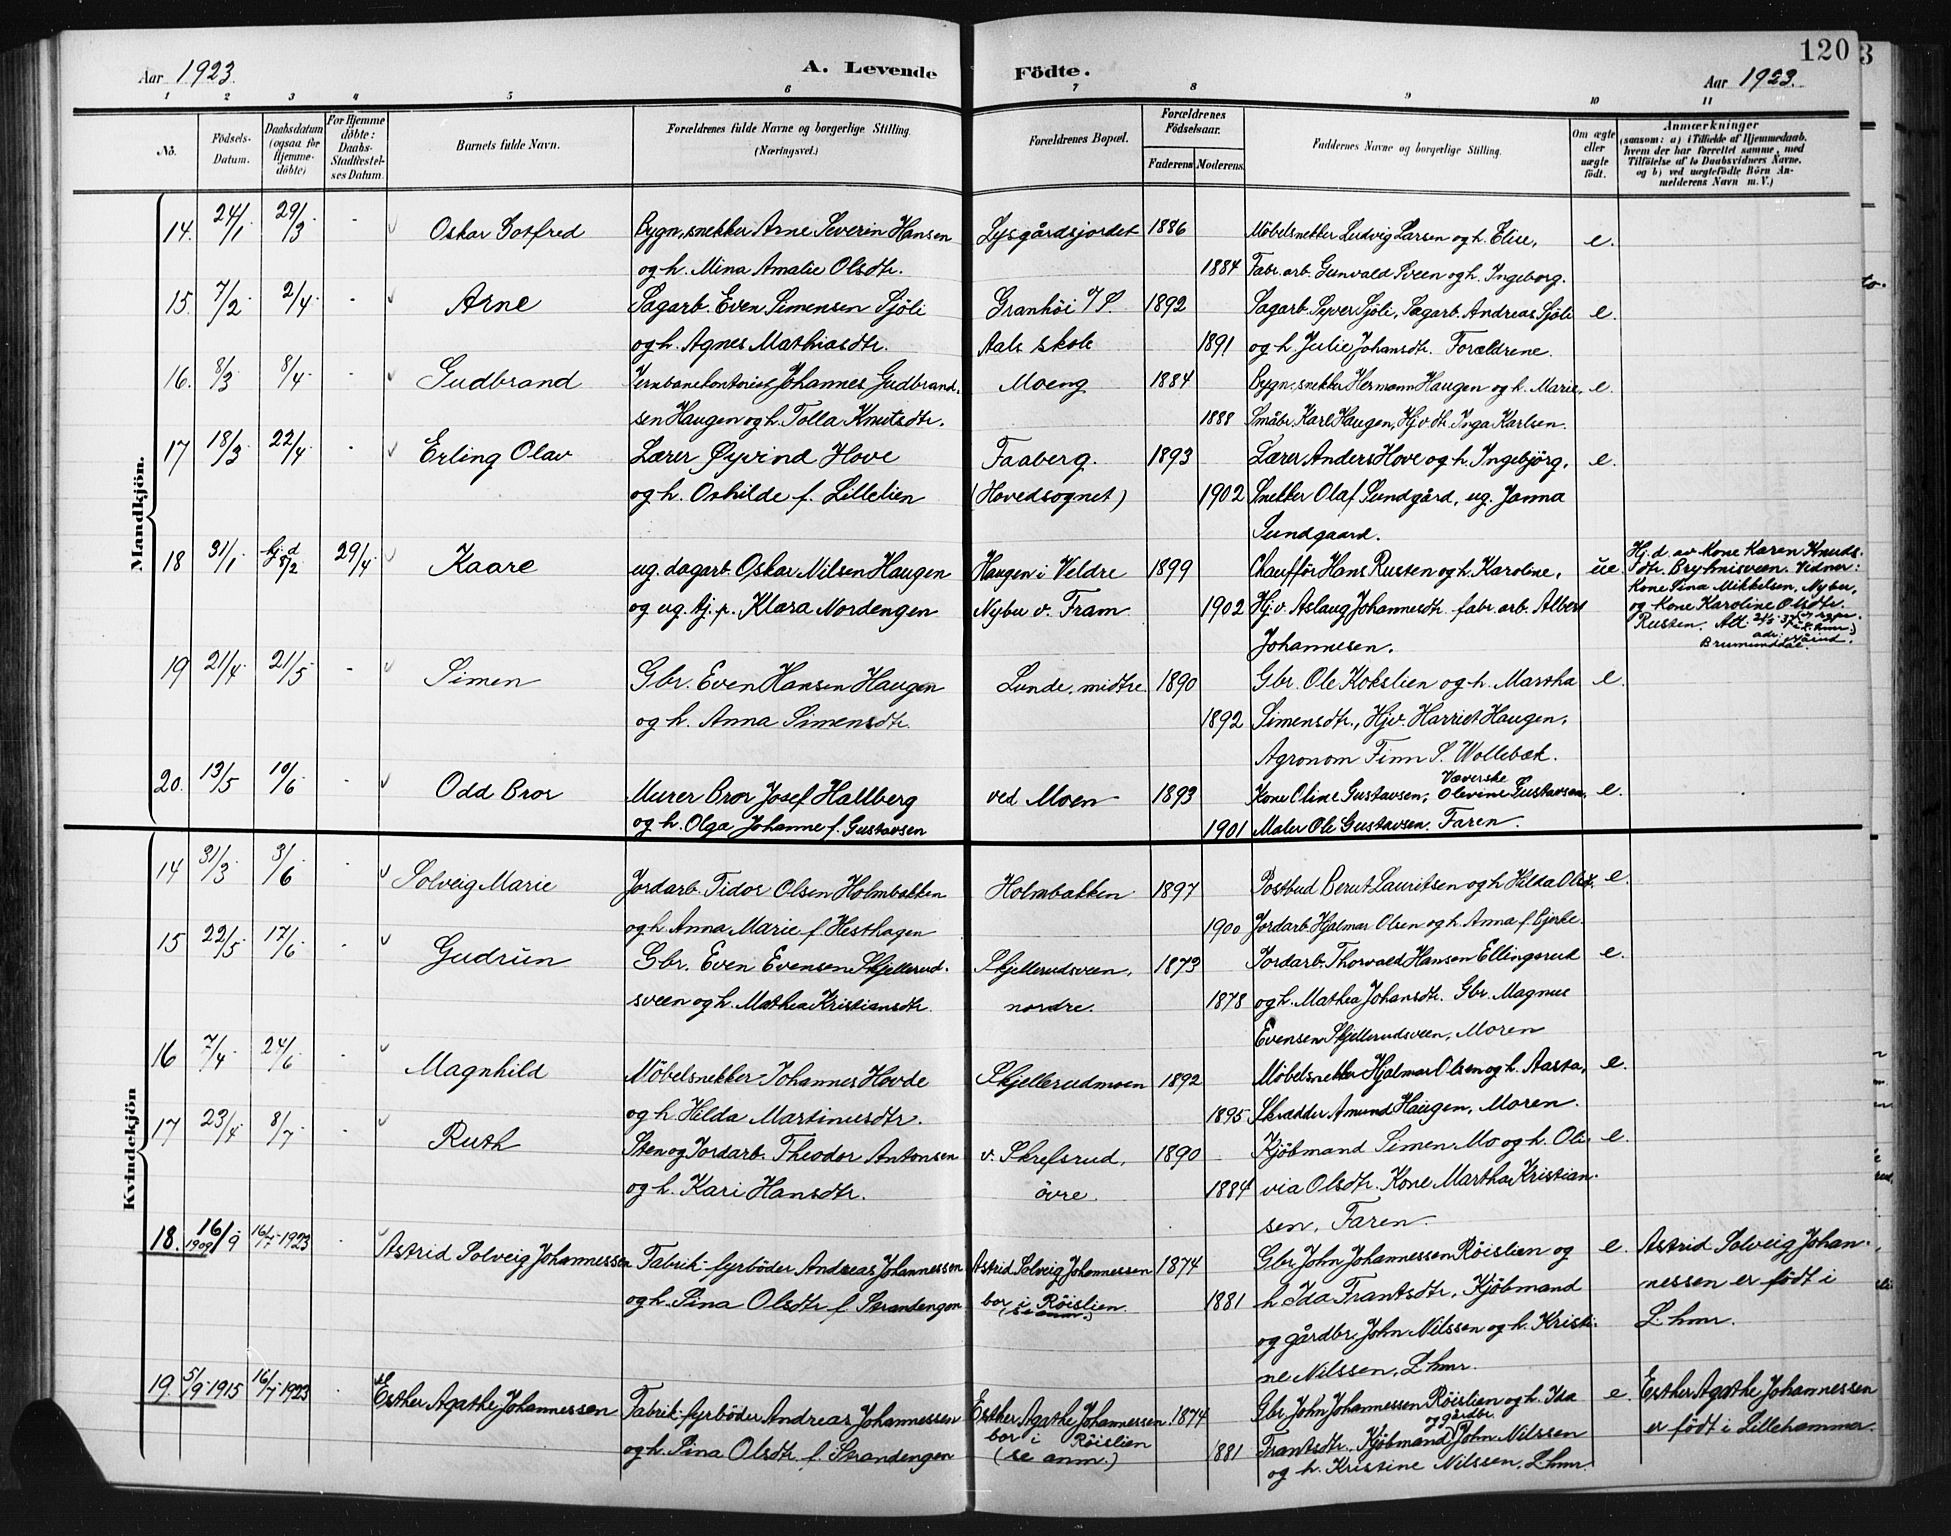 120
3
Aar 1923.
A. Levende Födte.
Aar 1923.
1 2 3 4 5 6 7 8 9 10 11
No.
Födsels-Datum.
Daabsdatum (ogsaa for Hjemme-döbte)
For Hjemme döbte: Daabs-Stadfæstel-ses Datum.
Barnets fulde Navn.
Forældrenes fulde Navne og borgerlige Stilling.
(Næringsvei.)
Forældrenes Bopæl.
Forældrenes Födselsaar.
Faderens Moderens
Faddernes Navne og borgerlige Stilling.
Om ægte eller uægte födt.
Anmærkninger
(saasom: a) i Tilfælde af Hjemmedaab.
hvem der har forrettet samme, med
Tilföielse af to Daabsvidners Navne.
og b) ved uægtefödte Börn An-
melderens Navn m. V.)
Mandkjön.
14. 24/1 29/3 - Oskar Gotfred Bygn.snekker Arne Severin Hansen Lysgårdsjordet 1886 Möbelsnekker Ludvig Larsen og h. Elise, e.
og h. Mina Amalie Olsdtr. 1884 Fabr. arb. Gunvald Sveen og h. Ingeborg.
15. 7/2 2/4 - Arne Sagarb. Even Simensen Sjöli Granhöi 1892 Sagarb. Syver Sjöli, Sagarb. Andreas Sjöli e.
og h. Agnes Mathiasdtr. Aals skole 1891 og h. Julie Johansdtr. Forældrene.
16. 8/3 8/4 - Gudbrand Jernbanekontorist Johannes Gudbrand- Moeng 1884 Bygn.snekker Hermann Haugen og h. Marie, e.
sen Haugen og h. Tolla Knutsdtr. 1888 Småbr. Karl Haugen, Hjv. dtr. Inga Karlsen.
17 18/3 22/4 - Erling Olav Lærer Øyvind Hove Faaberg. 1893 Lærer Anders Hove og h. Ingebjörg, e.
og h. Oshilde f. Lillelien (Hovedsognet) 1902 Snekker Olaf Sundgård, ug. Janna
Sundgaard.
18 31/1 hj. d 8/2 29/4 Kaare ug. dagarb. Oskar Nilsen Haugen Haugen i Veldre 1899 Chaufför Hans Rusten og h. Karoline, ue.
og ug. tj. p. Klara Nordengen Nybu v. Fram 1902 Hjv. Aslaug Johannesdtr. fabr. arb. Albert
Johannesen.
Hj. d. av Kone Karen Knuds-
dtr. Bryhnisveen. Vidner:
Kone Sina Mikkelsen, Nybu,
og Kone Karoline Olsdtr.
Rusten. Att.
Brumunddal.
19 21/4 21/5 - Simen Gbr. Even Hansen Haugen Lunde, midtre 1890 Gbr. Ole Kokslien og h. Martha e.
og h. Anna Simensdtr. 1892 Simensdtr., Hjv. Harriet Haugen,
Agronom Finn S. Wollebæk.
20. 13/5 10/6 - Odd Bror Murer Bror Josef Hallberg ved Moen 1893 Kone Oline Gustavsen, Væverske Olevine Gustavsen, e.
og h. Olga Johanne f. Gustavsen 1901 Maler Ole Gustavsen. Faren.
Kvindekjön
14 31/3 3/6 - Solveig Marie Jordarb. Tidor Olsen Holmbakken Holmbakken 1897 Postbud Berut Lauritsen og h Hilda Olsdt. e.
og h. Anna Marie f. Hesthagen 1900 Jordarb. Hjalmar Olsen og h. Anna f. Bjerke.
15 22/5 17/6 - Gudrun Gbr. Even Evensen Skjellerud- Skjellerudsveen, 1873 Jordarb. Thorvald Hansen Ellingsrud e.
sveen og h. Mathea Kristiansdtr. nordre. 1878 og h. Mathea Johansdtr. Gbr. Magnus
Evensen Skjellerudsveen, Moren
16 7/4 24/6 - Magnhild Möbelsnekker Johannes Hovde Skjellerudmoen 1892 Möbelsnekker Hjalmar Olsen og h. Aasta, e.
og h. Hilda Martinusdtr. 1895 Skrædder Amund Haugen, Moren.
17 23/4 8/7 - Ruth Sten og Jordarb. Theodor Antonsen v. Skrefsrud, 1890 Kjöbmand Simen Mo og h. Oli- e.
og h. Kari Hansdtr. övre. 1884 via Olsdtr. Kone Martha Kristian-
sen, Faren.
18. 16/9 1909 16/7-1923 - Astrid Solveig Johannessen Fabrik-fyrböder Andreas Johannessen Astrid Solveig Johannessen 1874 Gbr. John Johannessen Röislien og e. Astrid Solveig Johan-
og h. Sina Olsdtr. f. Strandengen bor i Röislien. (se anm.) 1881 h. Ida Frantsdtr., Kjöbmand nessen er födt i
og gårdbr. John Nilssen og h. Kristi- L.hmr.
ne Nilssen, L.hmr.
19. 5/9-1915 16/7-1923 - Esther Agathe Johannessen Fabrik-fyrböder Andreas Johannessen Esther Agathe Johannessen 1874 Gbr. John Johannessen Röislien og h. Ida e. Esther Agathe Johannessen
og h. Sina Olsdtr. f. Strandengen bor i Röislien (se anm.) 1881 Frantsdtr. Kjöbmand og gårdbr. John Nilssen er födt i Lillehammer.
og h. Kristine Nilssen, L.hmr.